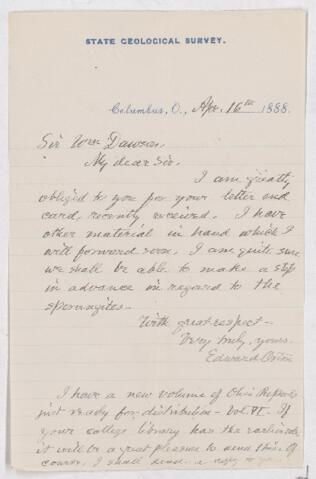 STATE GEOLOGICAL SURVEY.
Columbus, O., Apr. 16th 1888.
Sir Wm Dawson,
My dear Sir,
I am greatly
obliged to you for your letter and
card, recently received. I have
other material in hand which I
will forward soon. I am quite sure
we shall be able to make a step
in advance in regard to the
sporangites—
With great respect—
Very truly, yours,
Edward Orton
I have a new volume of Ohio Reports
just ready for distribution— Vol. VI. If
your college library has the earlier vols.
it will be a great pleasure to send this. Of
course, I shall send a copy to you